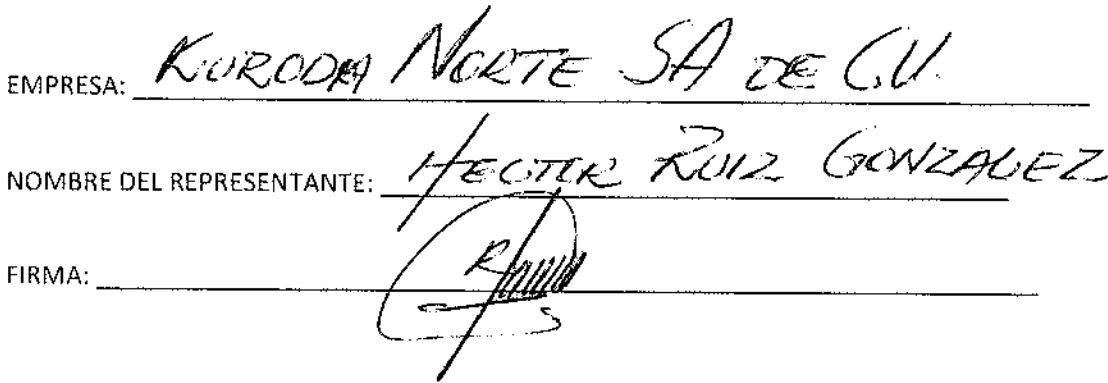 EMPRESA: KURODA NORTE SA DE C.V.
NOMBRE DEL REPRESENTANTE: HECTOR RUIZ GONZALEZ
FIRMA: